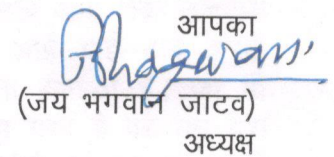 आपका
Bhagwan
(जय भगवान जाटव)
अध्यक्ष